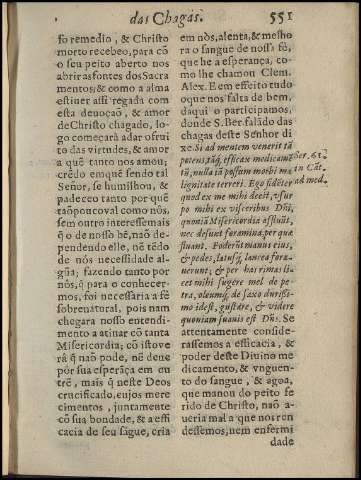 das Chagas. 551
so remedio, & Christo
morto recebeo, para cõ
o seu peito aberto nos
abrir as fontes dos Sacra
mentos; & como a alma
estiuer assi regada com
esta deuoçaõ, & amor
de Christo chagado, lo-
go começarà a dar o frui
to das virtudes, & amor
a quẽ tanto nos amou;
crẽdo em quẽ sendo tal
Señor, se humilhou, &
padeceo tanto por quẽ
taõ pouco val como nòs,
sem outro interesse mais
q̃ o de nosso bẽ, naõ de-
pendendo elle, nẽ tẽdo
de nòs necessidade al-
gũa; fazendo tanto por
nòs, q̃ para o conhecer-
mos, foi necessaria a fé
sobrenatural, pois nam
chegara nosso entendi-
mento a atinar cõ tanta
Misericordia; cõ isto ve
rà q̃ naõ pode, nẽ deue
pòr sua esperãça em ou
trẽ, mais q̃ neste Deos
crucificado, cujos mere
cimentos, juntamente
cõ sua bondade, & a effi
cacia de seu sãgue, cria
em nòs, alenta, & melho
ra o sangue de nossa fé,
que he a esperança, co-
mo lhe chamou Clem.
Alex. E em effeito tudo
o que nos falta de bem,
daqui o participamos,
donde S. Ber. falãdo das
chagas deste Senhor di
xe. Si ad mentem venerit tã
potens, tãq; efficax medicamẽ
tũ, nulla iã possum morbi ma
lignitate terreri. Ego fidẽter
quod ex me mihi deest, vsur
po mihi ex visceribus Dñi,
quoniã Misericordia affluũt,
nec desunt foramina per quæ
fluant. Foderũt manus eius,
& pedes, latusq; lancea fora-
uerunt, & per has rimas li-
cet mihi sugere mel de pe-
tra, oleumq; de saxo durissi-
mo idest, gustare, & videre
quoniam suauis est Dñs. Se
attentamente conside-
rassemos a efficacia, &
poder deste Diuino me
dicamento, & vnguen-
to do sangue, & agoa,
que manou do peito fe
rido de Christo, naõ a-
ueria mal a que nos ren
dessemos, nem enfermi
dade
Ber. 61.
in Cãt.
ad med.